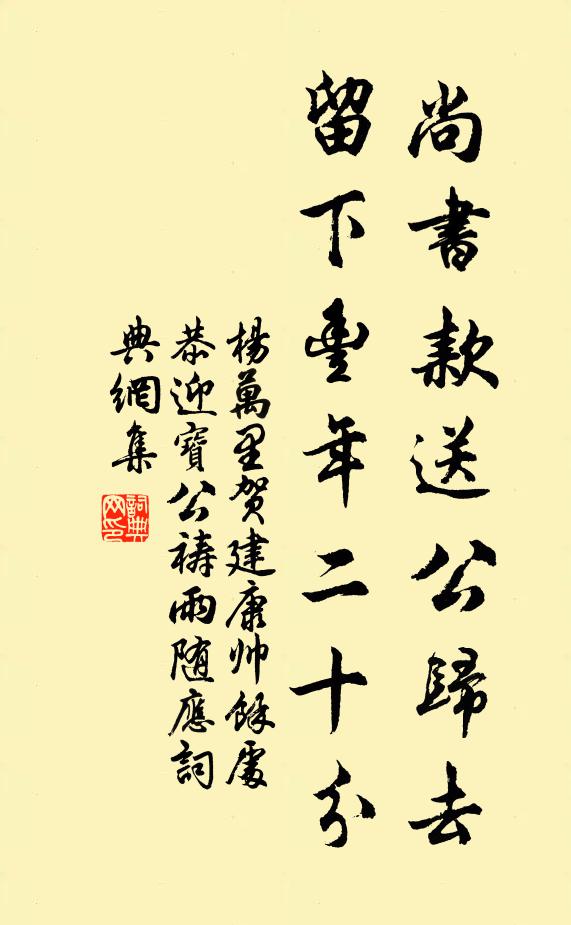 尚書款送公歸去
留下豐年二十分
楊萬里賀建康帅餘處
恭迎寶公禱雨随應詞
典網集
詞典
网印